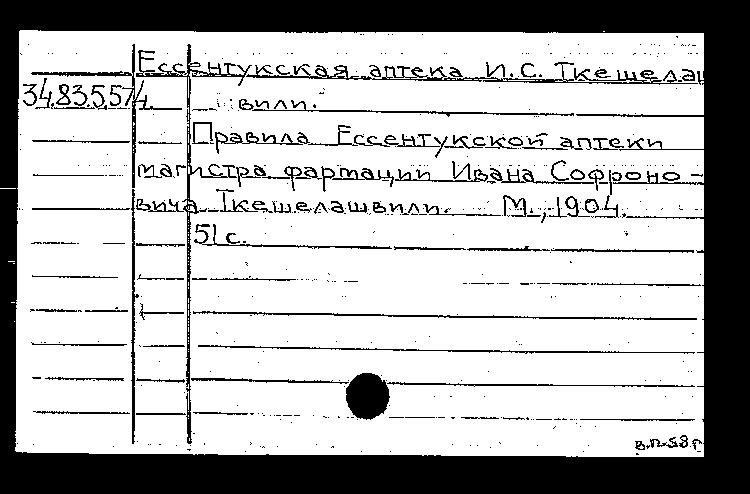 Ессентукская аптека И.С. Ткешелаш
34.83.5.5/4. вили.
Правила Ессентукской аптеки
магистра фармации Ивана Софроно-
вича Ткешелашвили. М., 1904.
51 с.